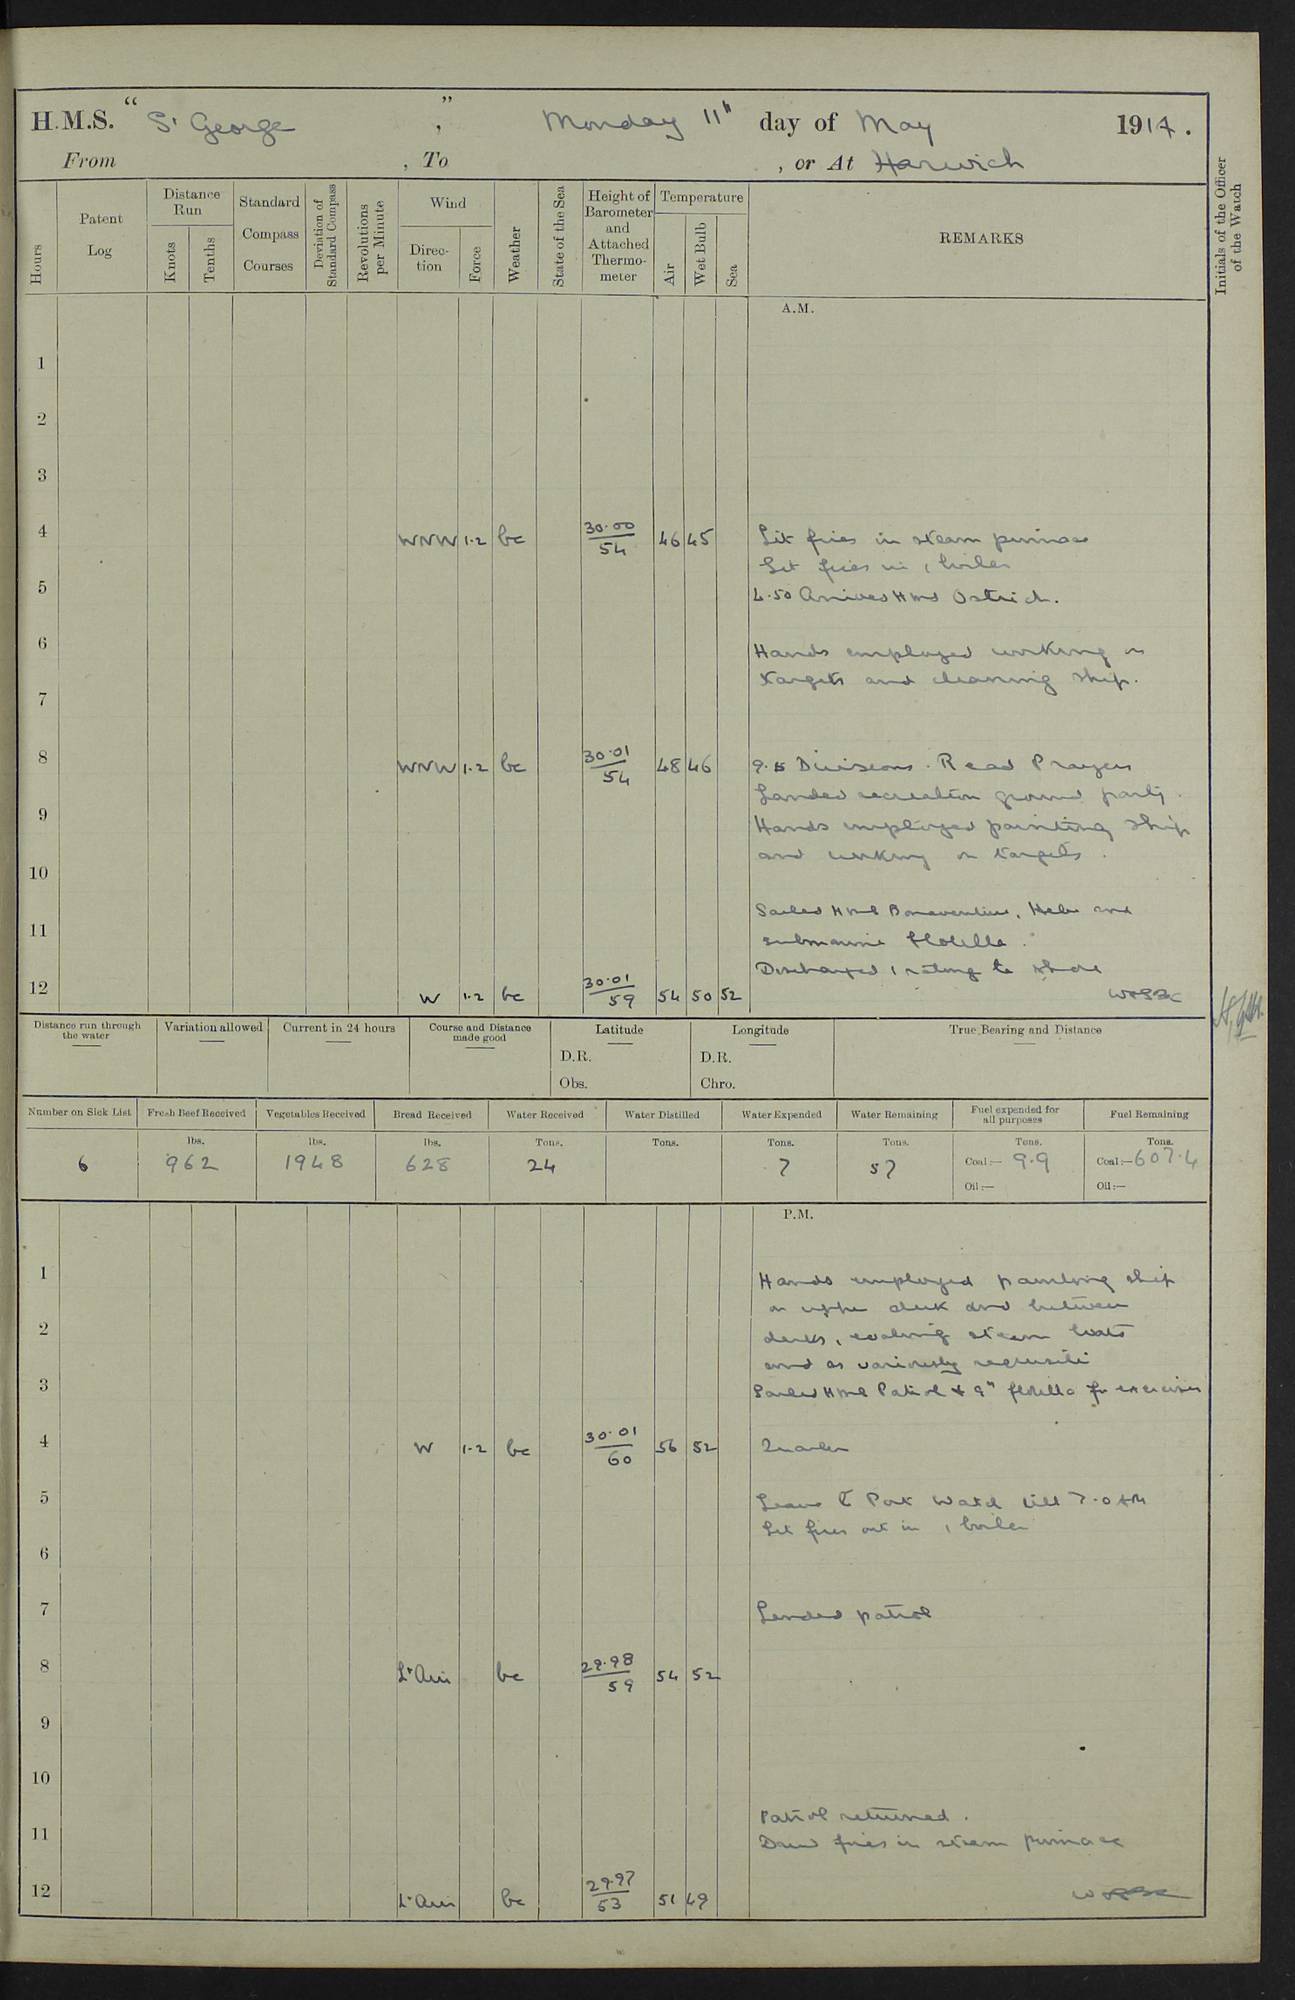 H.M.S. "St George", Monday 11th day of May 1914.
From , To , or At Harwich
Hours
Patent Log
Distance Run
Knots
Tenths
Standard Compass Courses
Deviation of Standard Compass
Revolutions per Minute
Wind
Direction
Force
Weather
State of the Sea
Height of Barometer and Attached Thermometer
Temperature
Air
Wet Bulb
Sea
REMARKS
Initials of the Officer of the Watch
A.M.
1
2
3
4 WNW 1.2 bc 30.00/54 46 45 Lit fires in steam pinnace
Lit fires in 1 boiler
5 4.50 Arrived HMS Ostrich.
6 Hands employed working on
7 targets and cleaning ship.
8 WNW 1.2 bc 30.01/54 48 46 9.5 Divisions. Read Prayers
Landed recreation ground party.
9 Hands employed painting ship
10 and working on targets.
11 Sailed HMS Bonaventure, Hebe and
submarine flotilla.
Discharged 1 rating to shore
12 W 1.2 bc 30.01/59 54 50 52
Distance run through the water
Variation allowed
Current in 24 hours
Course and Distance made good
Latitude
D.R.
Obs.
Longitude
D.R.
Chro.
True Bearing and Distance
Number on Sick List
6
Fresh Beef Received
lbs.
962
Vegetables Received
lbs.
1948
Bread Received
lbs.
628
Water Received
Tons.
24
Water Distilled
Tons.
Water Expended
Tons.
7
Water Remaining
Tons.
57
Fuel expended for all purposes
Tons.
Coal:— 9.9
Oil:—
Fuel Remaining
Tons.
Coal:— 607.4
Oil:—
P.M.
1 Hands employed painting ship
on upper deck and between
2 decks, coaling steam boats
and as variously requisite
3 Sailed HMS Patrol & 9th flotilla for exercises
4 W 1.2 bc 30.01/60 56 52 Quarters
5 Leave to Port Watch till 7.0 AM
Let fires out in 1 boiler
6
7 Landed patrol
8 Lt Airs bc 29.98/59 54 52
9
10
Patrol returned.
11 Drew fires in steam pinnace
12 Lt Airs bc 29.97/53 51 49